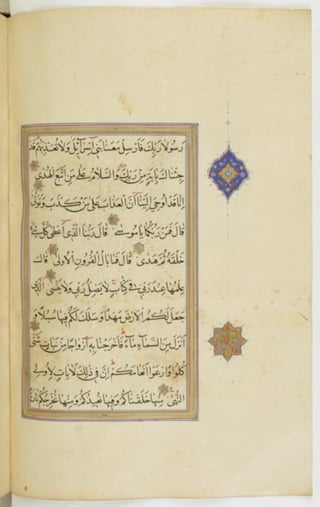 رَسُولَا رَبِّكَ فَأَرْسِلْ مَعَنَا بَنِي إِسْرَائِيلَ وَلَا تُعَذِّبْهُمْ قَدْ
جِئْنَاكَ بِآيَةٍ مِنْ رَبِّكَ وَالسَّلَامُ عَلَى مَنِ اتَّبَعَ الْهُدَى
إِنَّا قَدْ أُوحِيَ إِلَيْنَا أَنَّ الْعَذَابَ عَلَى مَنْ كَذَّبَ وَتَوَلَّى
قَالَ فَمَنْ رَبُّكُمَا يَا مُوسَى قَالَ رَبُّنَا الَّذِي أَعْطَى كُلَّ شَيْءٍ
خَلْقَهُ ثُمَّ هَدَى قَالَ فَمَا بَالُ الْقُرُونِ الْأُولَى قَالَ
عِلْمُهَا عِنْدَ رَبِّي فِي كِتَابٍ لَا يَضِلُّ رَبِّي وَلَا يَنْسَى الَّذِي
جَعَلَ لَكُمُ الْأَرْضَ مَهْدًا وَسَلَكَ لَكُمْ فِيهَا سُبُلًا وَ
أَنْزَلَ مِنَ السَّمَاءِ مَاءً فَأَخْرَجْنَا بِهِ أَزْوَاجًا مِنْ نَبَاتٍ شَتَّى
كُلُوا وَارْعَوْا أَنْعَامَكُمْ إِنَّ فِي ذَلِكَ لَآيَاتٍ لِأُولِي
النُّهَى مِنْهَا خَلَقْنَاكُمْ وَفِيهَا نُعِيدُكُمْ وَمِنْهَا نُخْرِجُكُمْ